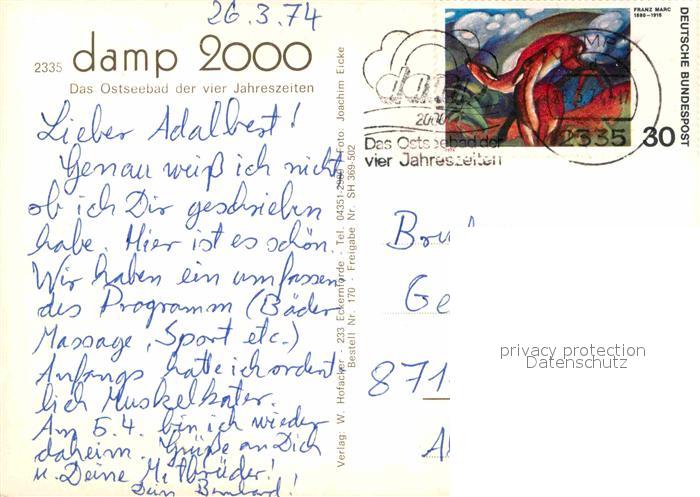 26.3.74
2335 damp 2000
Das Ostseebad der vier Jahreszeiten
Lieber Adalbert!
Genau weiß ich nicht
ob ich Dir geschrieben
habe. Hier ist es schön.
Wir haben ein umfassen
des Programm (Bäder
Massage, Sport etc.)
Anfangs hatte ich ordent
lich Muskelkater.
Am 5.4. bin ich wieder
daheim. Grüße an Dich
u. Deine Mitbrüder!
Dein Bernhard!
Verlag: W. Hofacker - 233 Eckernförde - Tel. 04351-2989 Foto: Joachim Eicke
Bestell Nr. 170 - Freigabe Nr. SH 369-502
FRANZ MARC
1880-1916
DEUTSCHE BUNDESPOST
30
damp
2000
Das Ostseebad der
vier Jahreszeiten
2335
Ge
871
privacy protection
Datenschutz